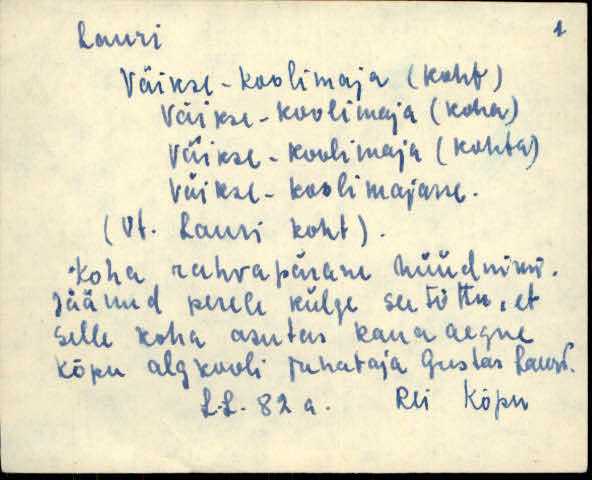 1
Lauri
Väikse-koolimaja (koht)
Väikse-koolimaja (koha)
Väikse-koolimaja (kohta)
Väikse-koolimajasse.
(Vt. Lauri koht).
Koha rahvapärane hüüdnimi.
Jäänud perele külge seetõttu, et
selle koha asutas kauaaegne
Kõpu algkooli juhataja Gustas Lauri.
L.L. 82 a. Rei Kõpu